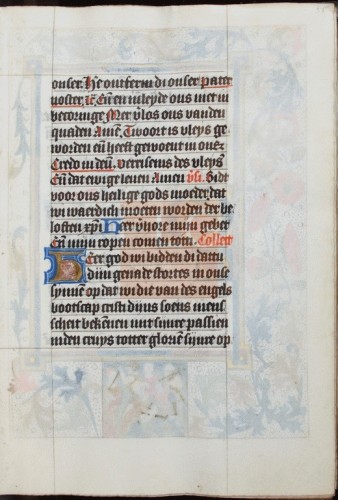 onser. He ontferm di onser. Pater
noster. Eñ en inleyde ons niet in
becoringe. Mer v̄los ons van den
quaden Amē. Twoort is vleys ge
worden eñ heeft gewoent in ons.
Credo in deū. verrisenis des vleys
Eñ dat ewige leuen Amen v̄si. Bidt
voor ons heilige gods moeder. dat
wi waerdich moeten worden der be
loften xpi. Heer v̄hore mijn gebet
Eñ mijn ropen come tot ti. Collect
Heer god wi bidden di dattu
dijn genade stortes in onse
synnē op dat wi die van des engels
bootscap cristi dijns soens mens
scheit bekēnen mit sijnre passien
in den cruys totter gloriēn sijnre op